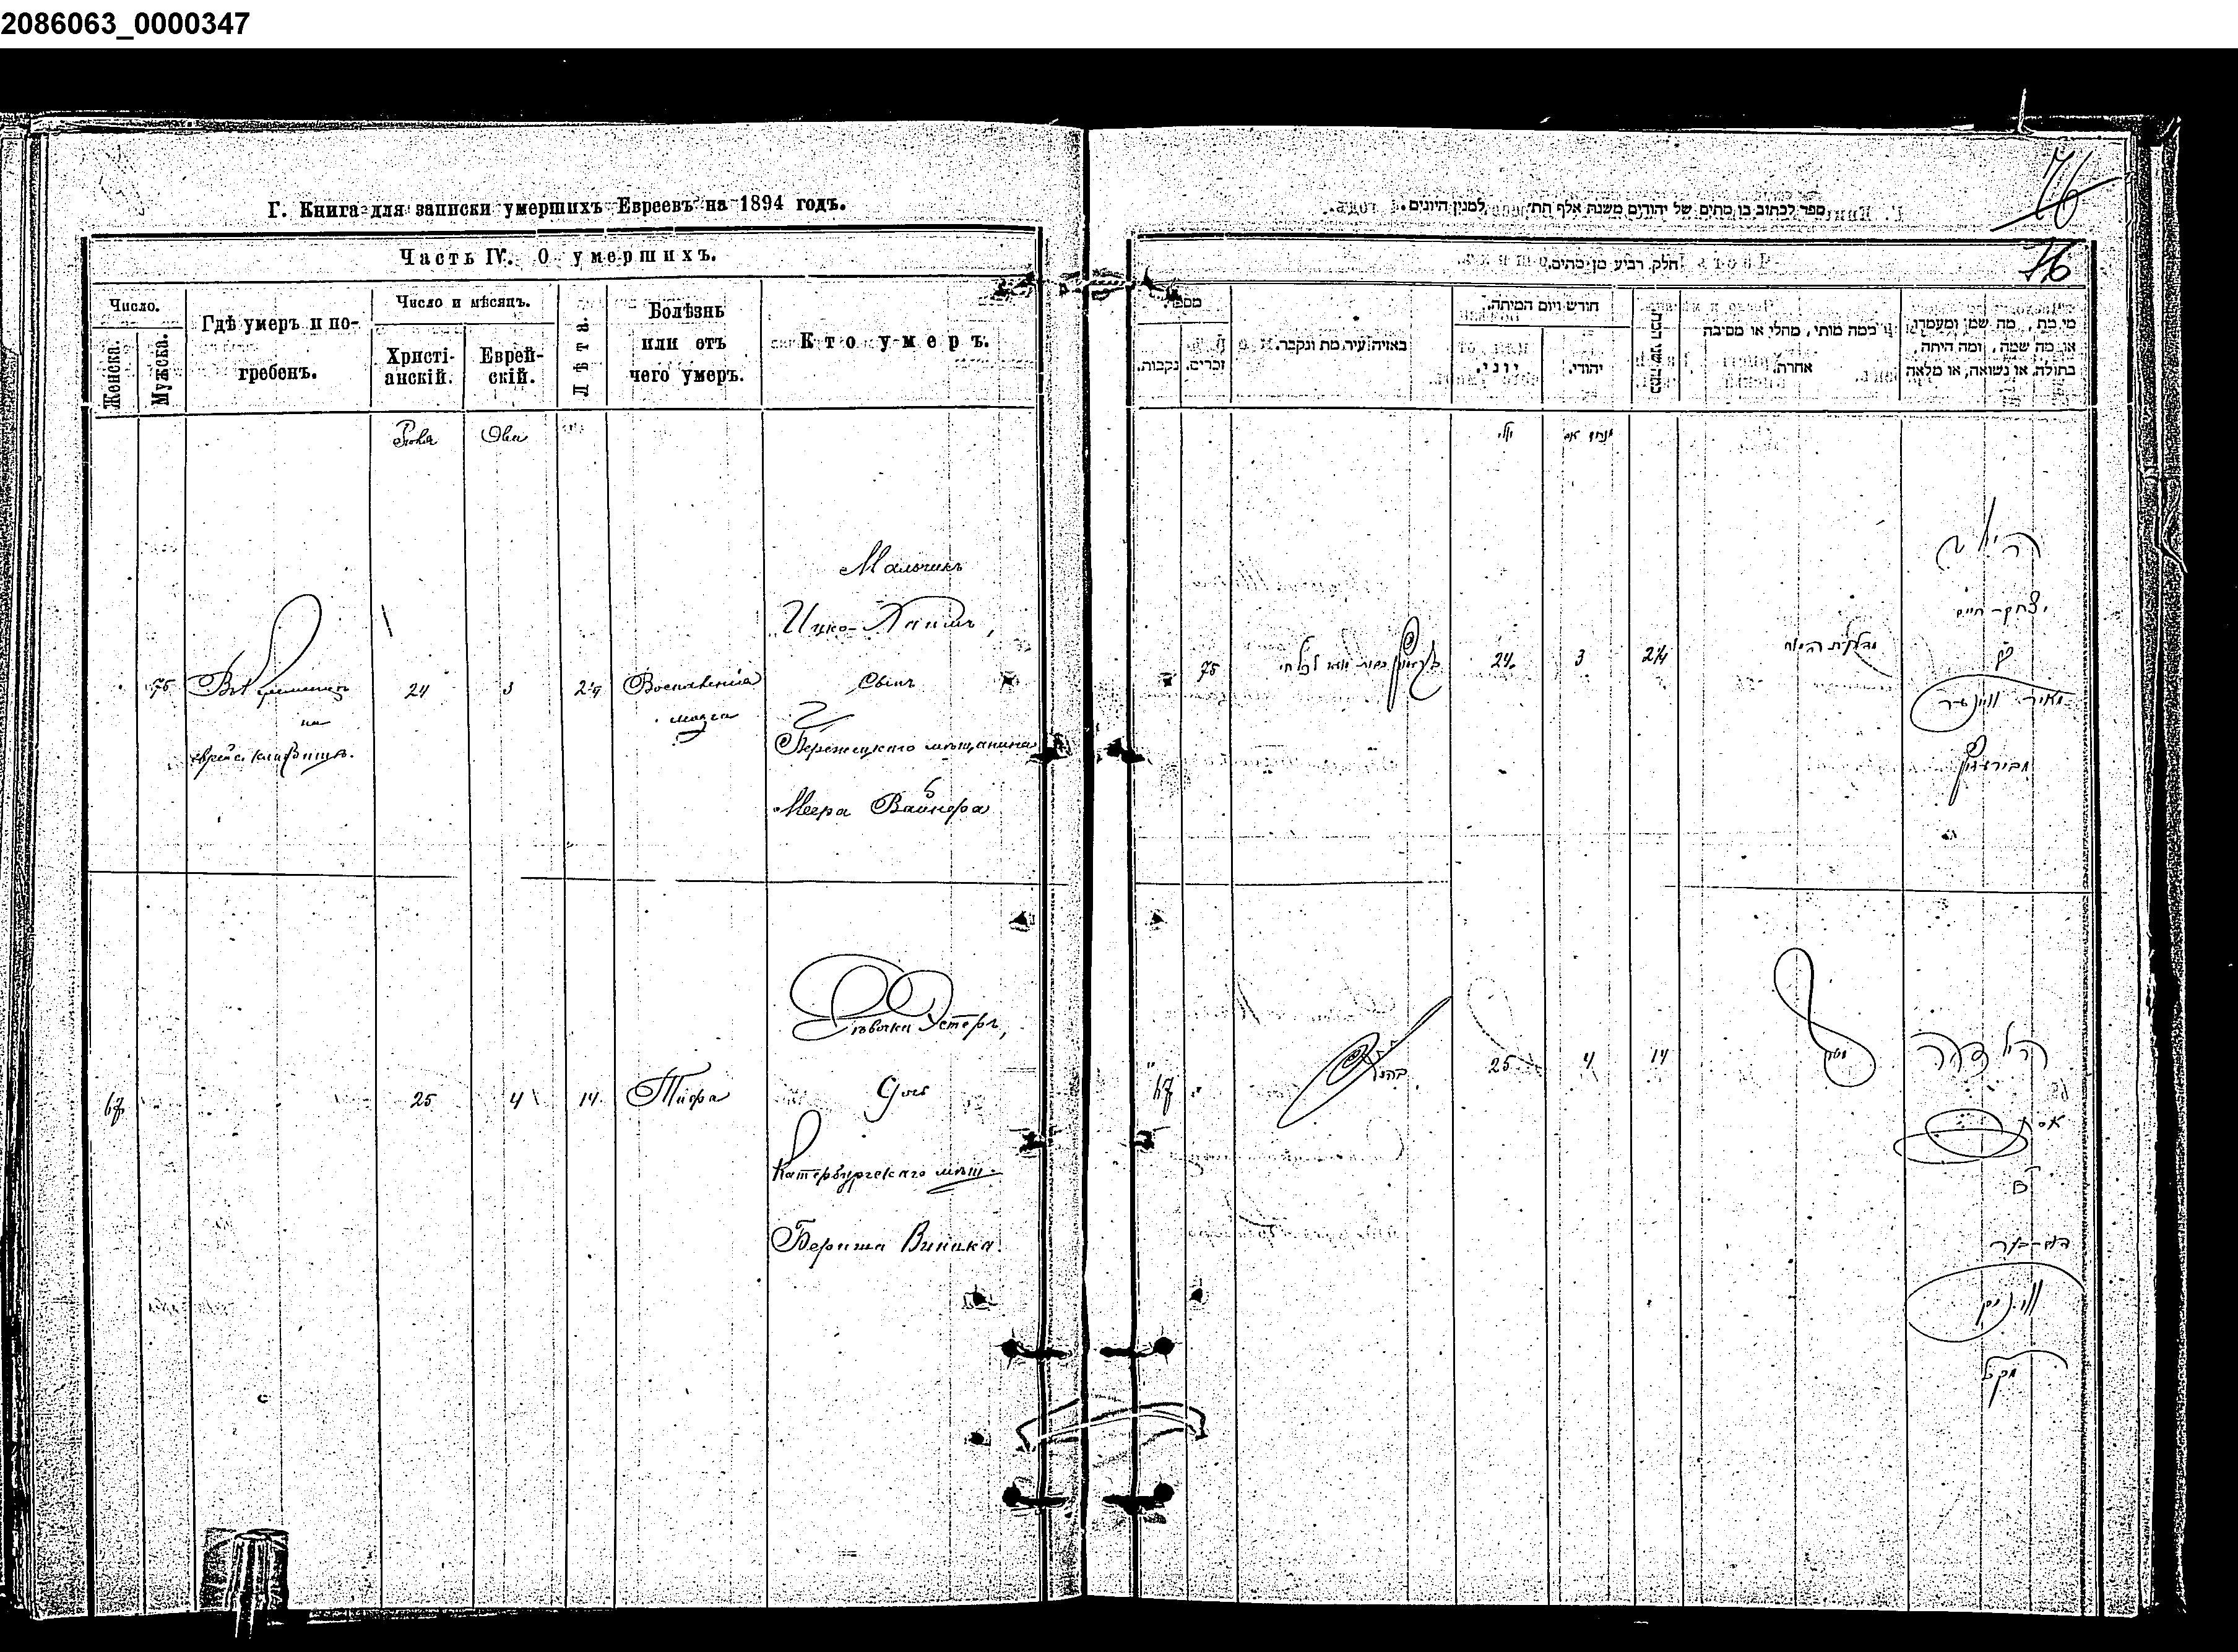 2086063_0000347
Г. Книга для записки умершихъ Евреевъ на 1894 годъ.
Часть IV. О умершихъ.
Число.
Женска.
Мужска.
Гдѣ умеръ и по-
гребенъ.
Число и мѣсяцъ.
Христі-
анскій.
Еврей-
скій.
Лѣта.
Болѣзнь
или отъ
чего умеръ.
Кто умеръ.
Іюля
Ова
75
Въ Кременцѣ
на
еврейс. кладбищѣ.
24
3
Воспаленія
мозга
Мальчикъ
Ицко-Хаимъ,
сынъ
мѣщанина
Меера Вайнера
67
25
4
14
Тифа
Дѣвочка Эстеръ,
дочь
Катербургскаго мѣщ.
Бериша Виника.
ספר לכתוב בו מתים של יהודים משנת אלף תת״ למנין היונים.
76
76
חלק רביע מן מתים.
מספר
נקבות.
זכרים.
באיזה עיר מת ונקבר.
חודש ויום המיתה.
יוני.
יהודי.
כמה שני המת
כמה מותי, מחלי או מסיבה
אחרת.
מי מת, מה שמו ומעמדו,
או מה שמה, ומה היתה,
בתולה, או נשואה, או מלאה
יולי
מנחם אב
75
24
3
הילד
יצחק חיים
מאיר ווינער
67
25
4
14
הילדה
אסתר
ב
דוב-בער
וויניק